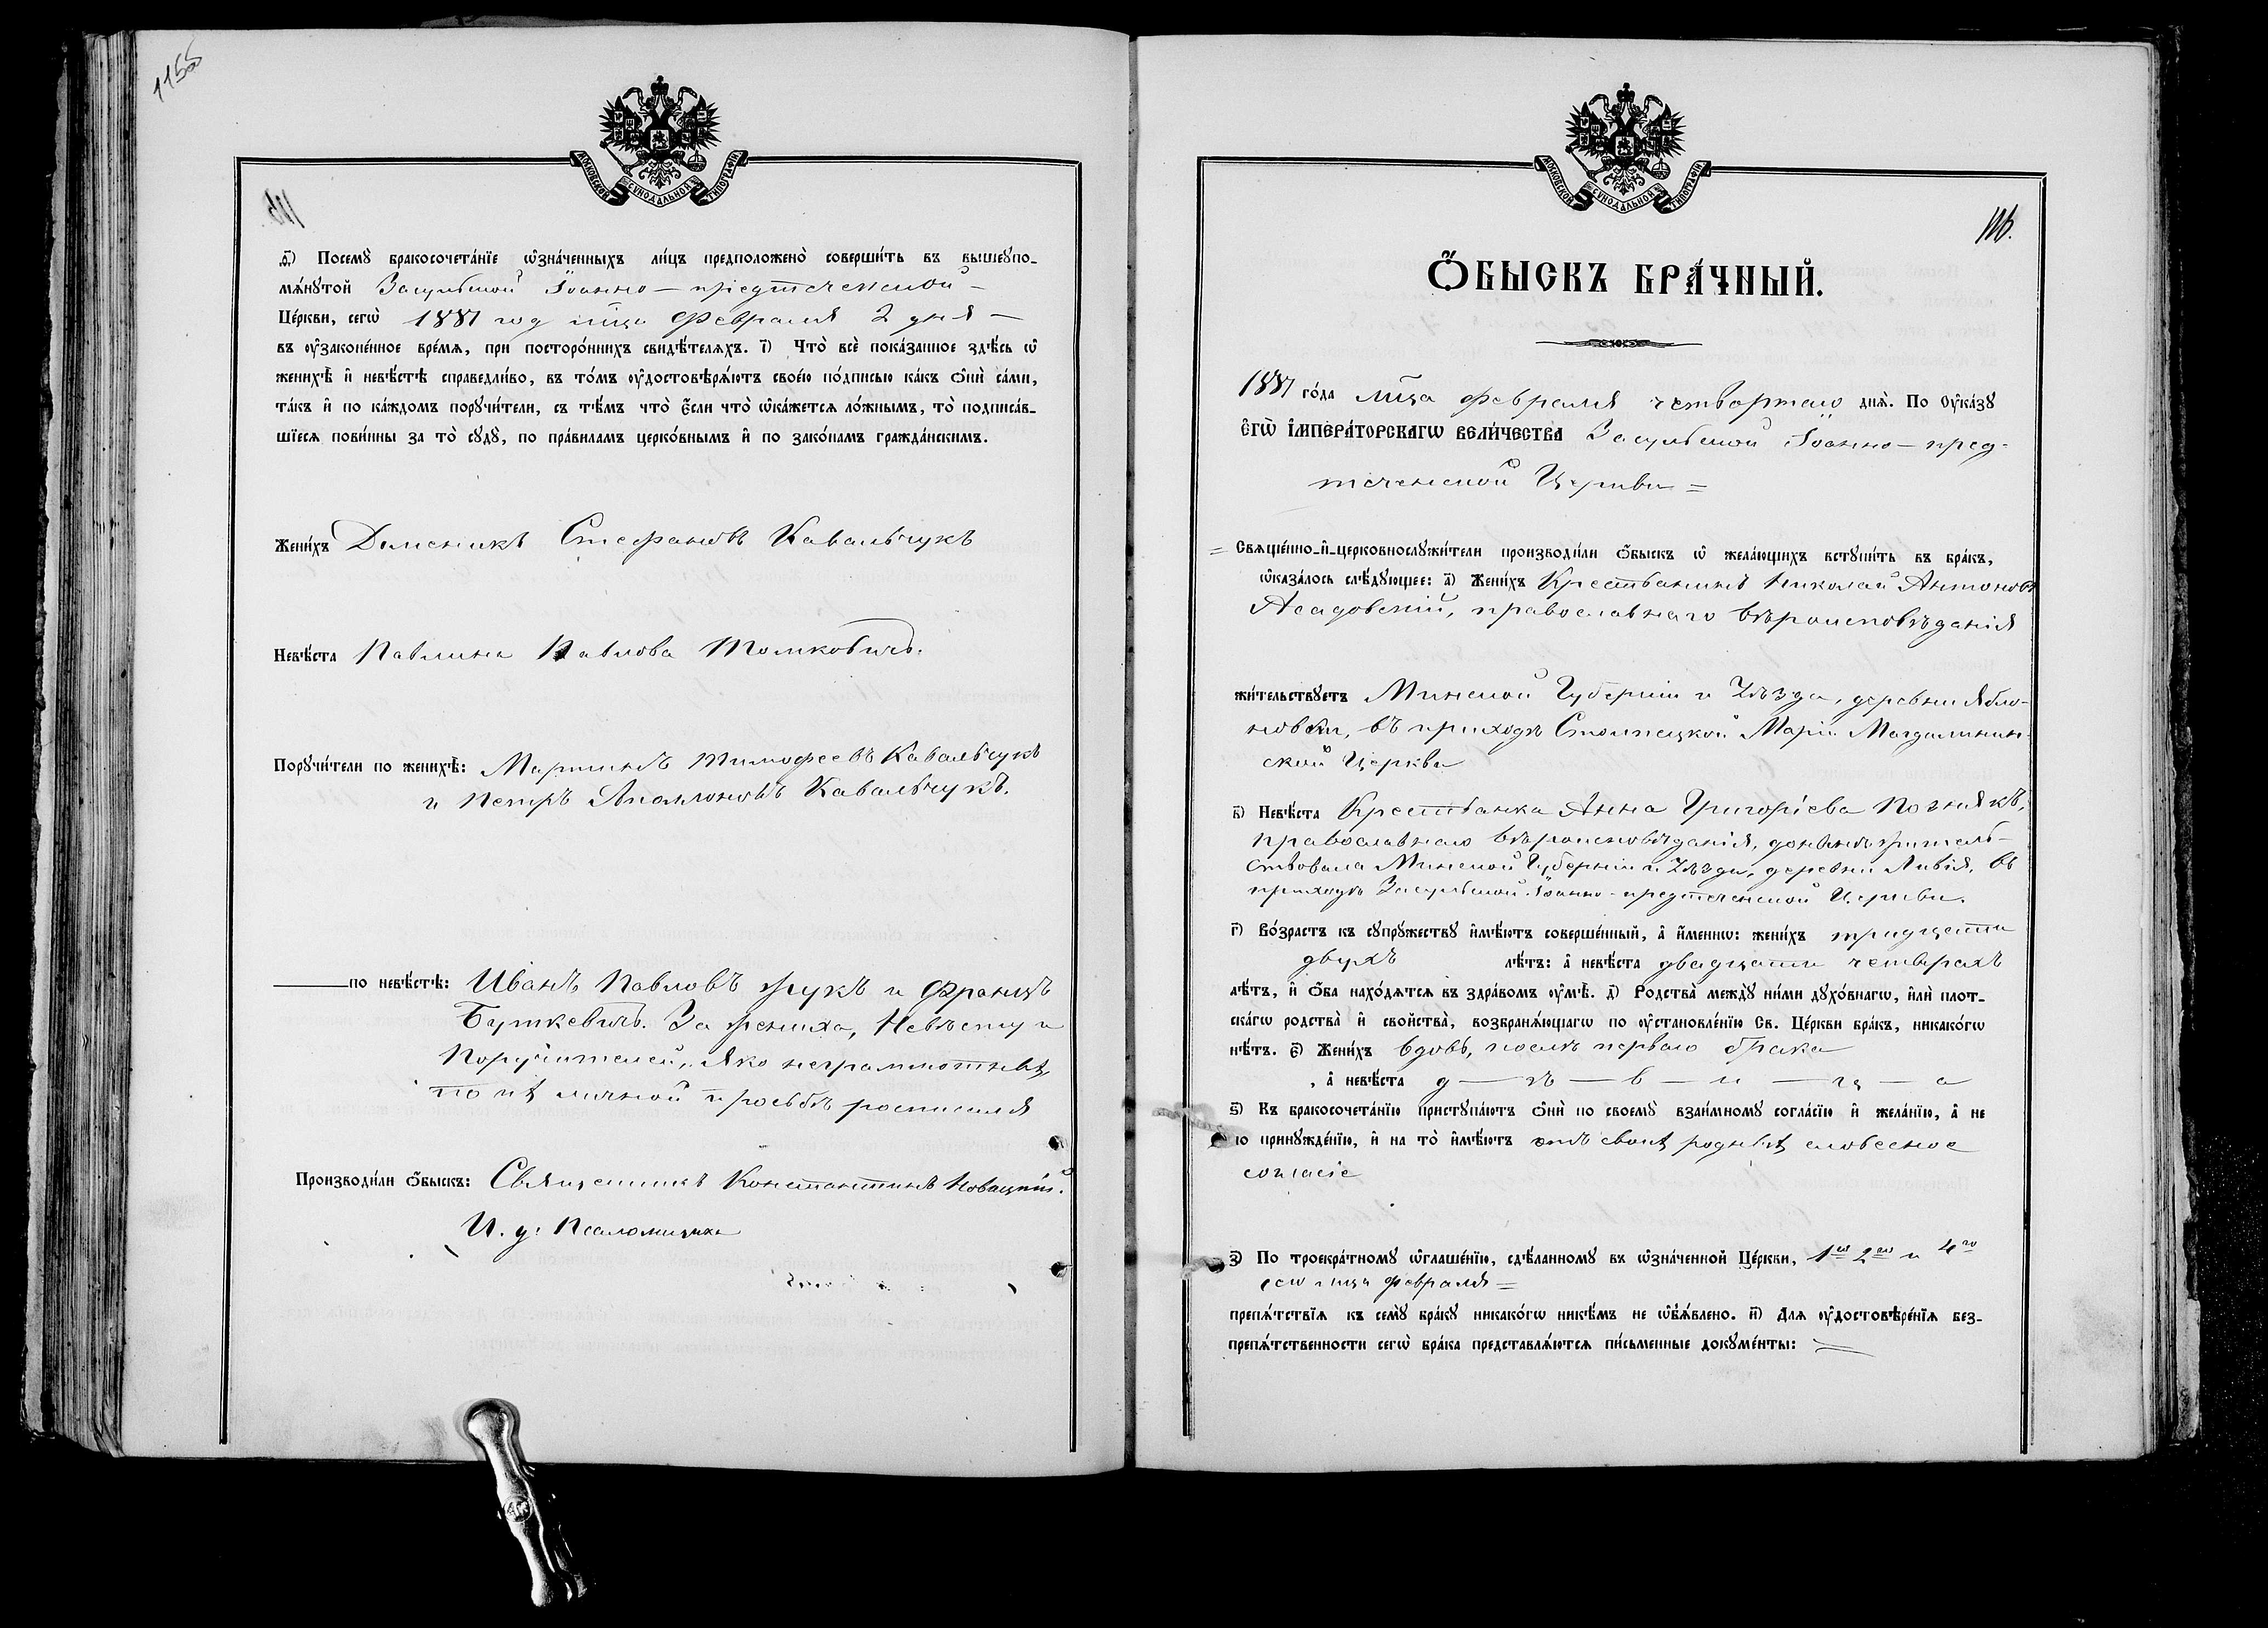 115б
МОСКОВСКОЙ СѴНОДАЛЬНОЙ ТИПОГРАФІИ
ѳ҃) Посемꙋ̀ бракосочета́нїе ѡ҆зна́ченныхъ ли́цъ предположено̀ соверши́ть въ вышеꙋпо-
мѧ́нꙋтой Засульской Іоанно-предтеченской
Це́ркви, сегѡ̀ 1881 год мца Февраля 2 дня
въ ᲂу҆законе́нное вре́мѧ, при посторо́ннихъ свидѣ́телѧхъ. і҃) Что̀ всѐ пока́занное здѣ́сь ѡ҆
женихѣ̀ и҆ невѣ́стѣ справедли́во, въ то́мъ ᲂу҆достовѣрѧ́ютъ свое́ю по́дписью ка́къ ѻ҆нѝ са́ми,
та́къ и҆ по ка́ждомъ порꙋчи́тели, съ тѣ́мъ что̀ є҆́сли что̀ ѡ҆ка́жетсѧ ло́жнымъ, то̀ подписа́в-
шїесѧ пови́нны за то̀ сꙋдꙋ̀, по пра́виламъ церко́внымъ и҆ по зако́намъ гражда́нскимъ.
Жени́хъ Доменикъ Стефановъ Кавальчукъ
Невѣ́ста Павлина Павлова Толковичъ.
Порꙋчи́тели по женихѣ̀: Мартинъ Тимофеевъ Кавальчукъ
и Петръ Аполлоновъ Кавальчукъ.
по невѣ́стѣ: Иванъ Павловъ Жукъ и Францъ
Буткевичъ. За жениха, Невѣсту и
Поручителей, яко неграммотныхъ,
по ихъ личной просьбѣ росписался
Производи́ли ѻ҆́быскъ: Священникъ Константинъ Новацкій.
И. д. Псаломщика
МОСКОВСКОЙ СѴНОДАЛЬНОЙ ТИПОГРАФІИ
116.
Ѻ҆́БЫСКЪ БРА́ЧНЫЙ.
1881 го́да мца февраля четвертаго днѧ̀. По ᲂу҆ка́зꙋ
Є҆ГѠ̀ І҆МПЕРА́ТОРСКАГѠ ВЕЛИ́ЧЕСТВА Засульской Іоанно-пред-
теченской Церкви =
= Свѧще́нно-и҆-церковнослꙋжи́тели производи́ли ѻ҆́быскъ ѡ҆ жела́ющихъ встꙋпи́ть въ бра́къ,
ѡ҆каза́лось слѣ́дꙋющее: а҃) Жени́хъ Крестьянинъ Николай Антоновъ
Асадовскій, православнаго вѣроисповѣданія
жи́тельствꙋетъ Минской Губерніи и Уѣзда, деревни Ябло-
новки, въ приходѣ Столпецкой Маріи Магдалинин-
ской Церкви
в҃) Невѣ́ста Крестьянка Анна Григоріева Познякъ,
православнаго вѣроисповѣданія, донынѣ житель-
ствовала Минской Губерніи и Уѣзда, деревни Ливія, въ
приходѣ Засульской Іоанно-предтеченской Церкви.
г҃) Во́зрастъ къ сꙋпрꙋ́жествꙋ и҆мѣ́ютъ соверше́нный, а҆ и҆́меннѡ: жени́хъ тридцати
двухъ лѣ́тъ: а҆ невѣ́ста двадцати четырехъ
лѣ́тъ, и҆ ѻ҆́ба нахо́дѧтсѧ въ здра́вомъ ᲂу҆мѣ̀. д҃) Родства̀ междꙋ̀ ни́ми дꙋхо́внагѡ, и҆лѝ плот-
ска́гѡ родства̀ и҆ сво́йства̀, возбранѧ́ющагѡ по ᲂу҆становле́нїю Св. Це́ркви бра́къ, никако́гѡ
нѣ́тъ. є҃) Жени́хъ вдовъ, послѣ перваго брака
, а҆ невѣ́ста д — ѣ — в — и — ц — а
ѕ҃) Къ бракосочета́нїю пристꙋпа́ютъ ѻ҆нѝ по своемꙋ̀ взаи́мномꙋ согла́сїю и҆ жела́нїю, а҆ не
по принꙋжде́нїю, и҆ на то̀ и҆мѣ́ютъ отъ своихъ родныхъ словесное
согласіе
з҃) По троекра́тномꙋ ѡ҆глаше́нїю, сдѣ́ланномꙋ въ ѡ҆зна́ченной Це́ркви, 1го 2го и 4го
сего мца февраля =
препѧ́тствїѧ къ семꙋ̀ бра́кꙋ никако́гѡ никѣ́мъ не ѡ҆бъѧ́влено. и҃) Длѧ ᲂу҆достовѣре́нїѧ без-
препѧ́тственности сегѡ̀ бра́ка представлѧ́ютсѧ пи́сьменные докꙋме́нты: =